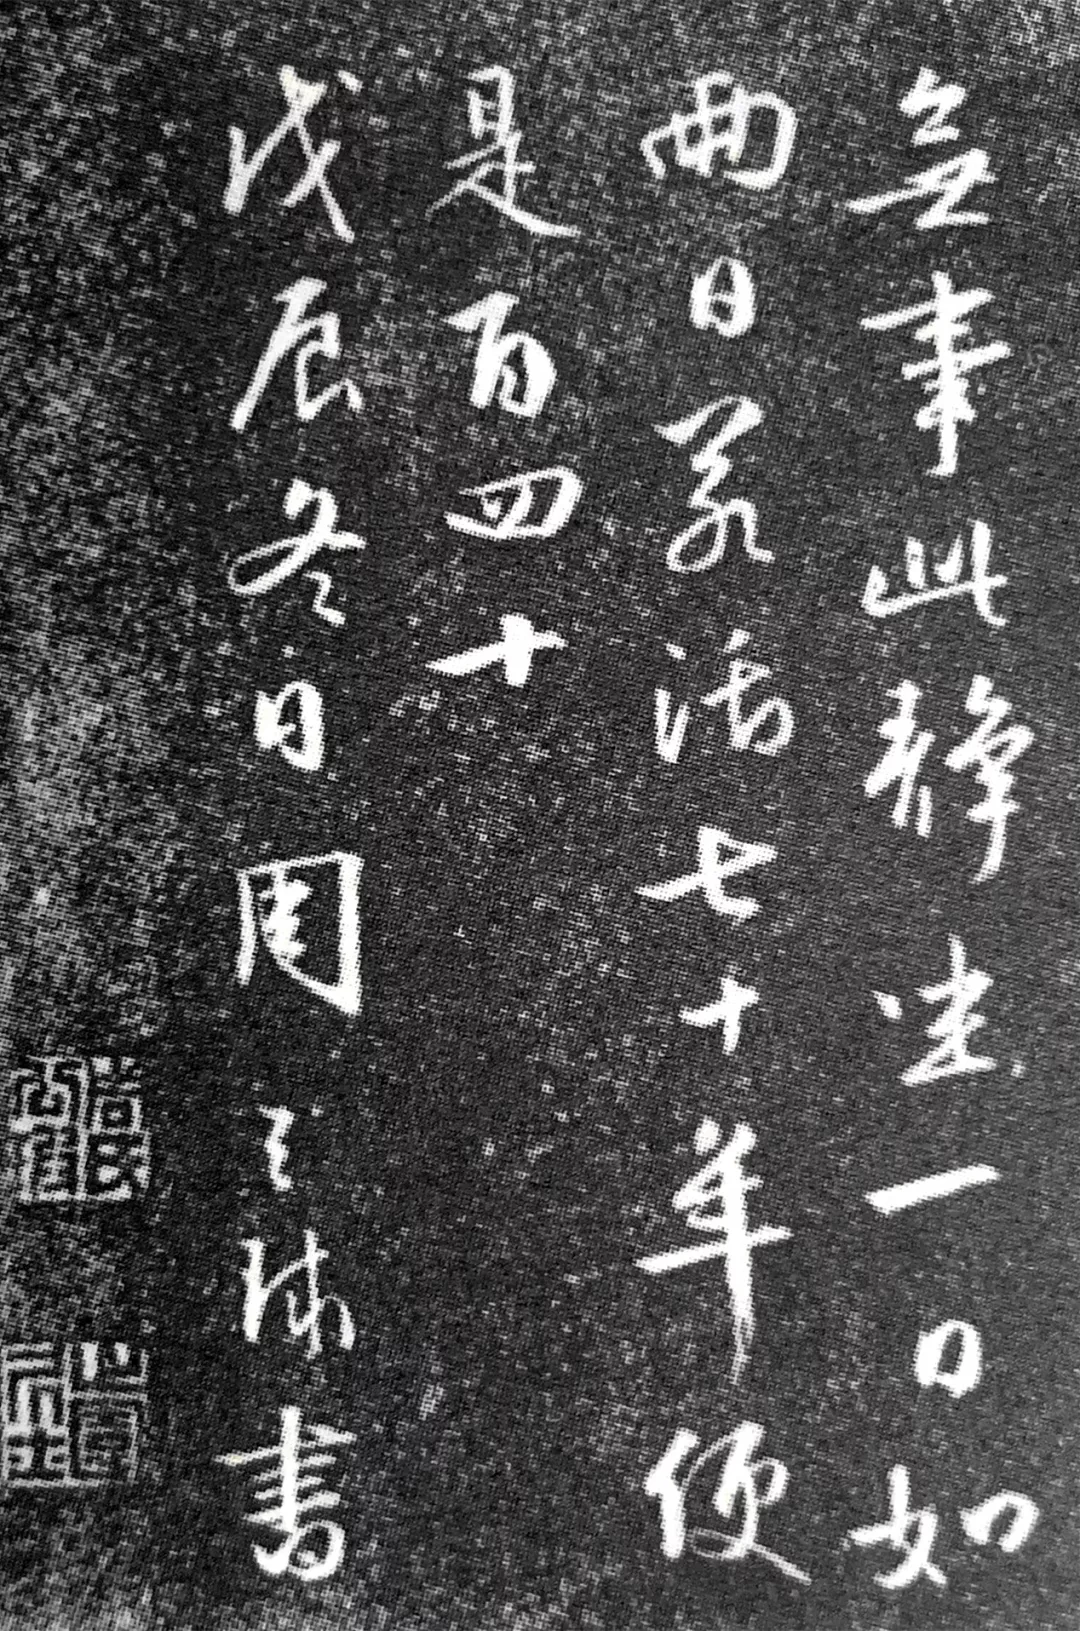 無事此靜坐一日如
兩日若活七十年便
是百四十
戊辰冬日周天球書
周氏公瑕